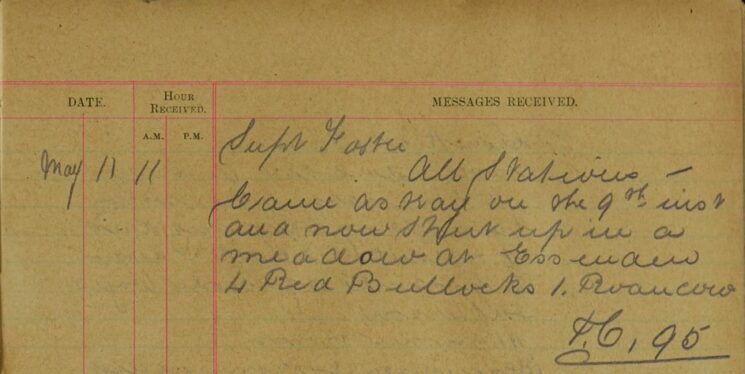 DATE. HOUR RECEIVED. MESSAGES RECEIVED.
A.M. P.M.
Supt Foster
May 11 11 All Stations –
Came astray on the 9th inst
and now Shut up in a
meadow at Essendon
4 Red Bullocks 1. Roan cow
P.C, 95